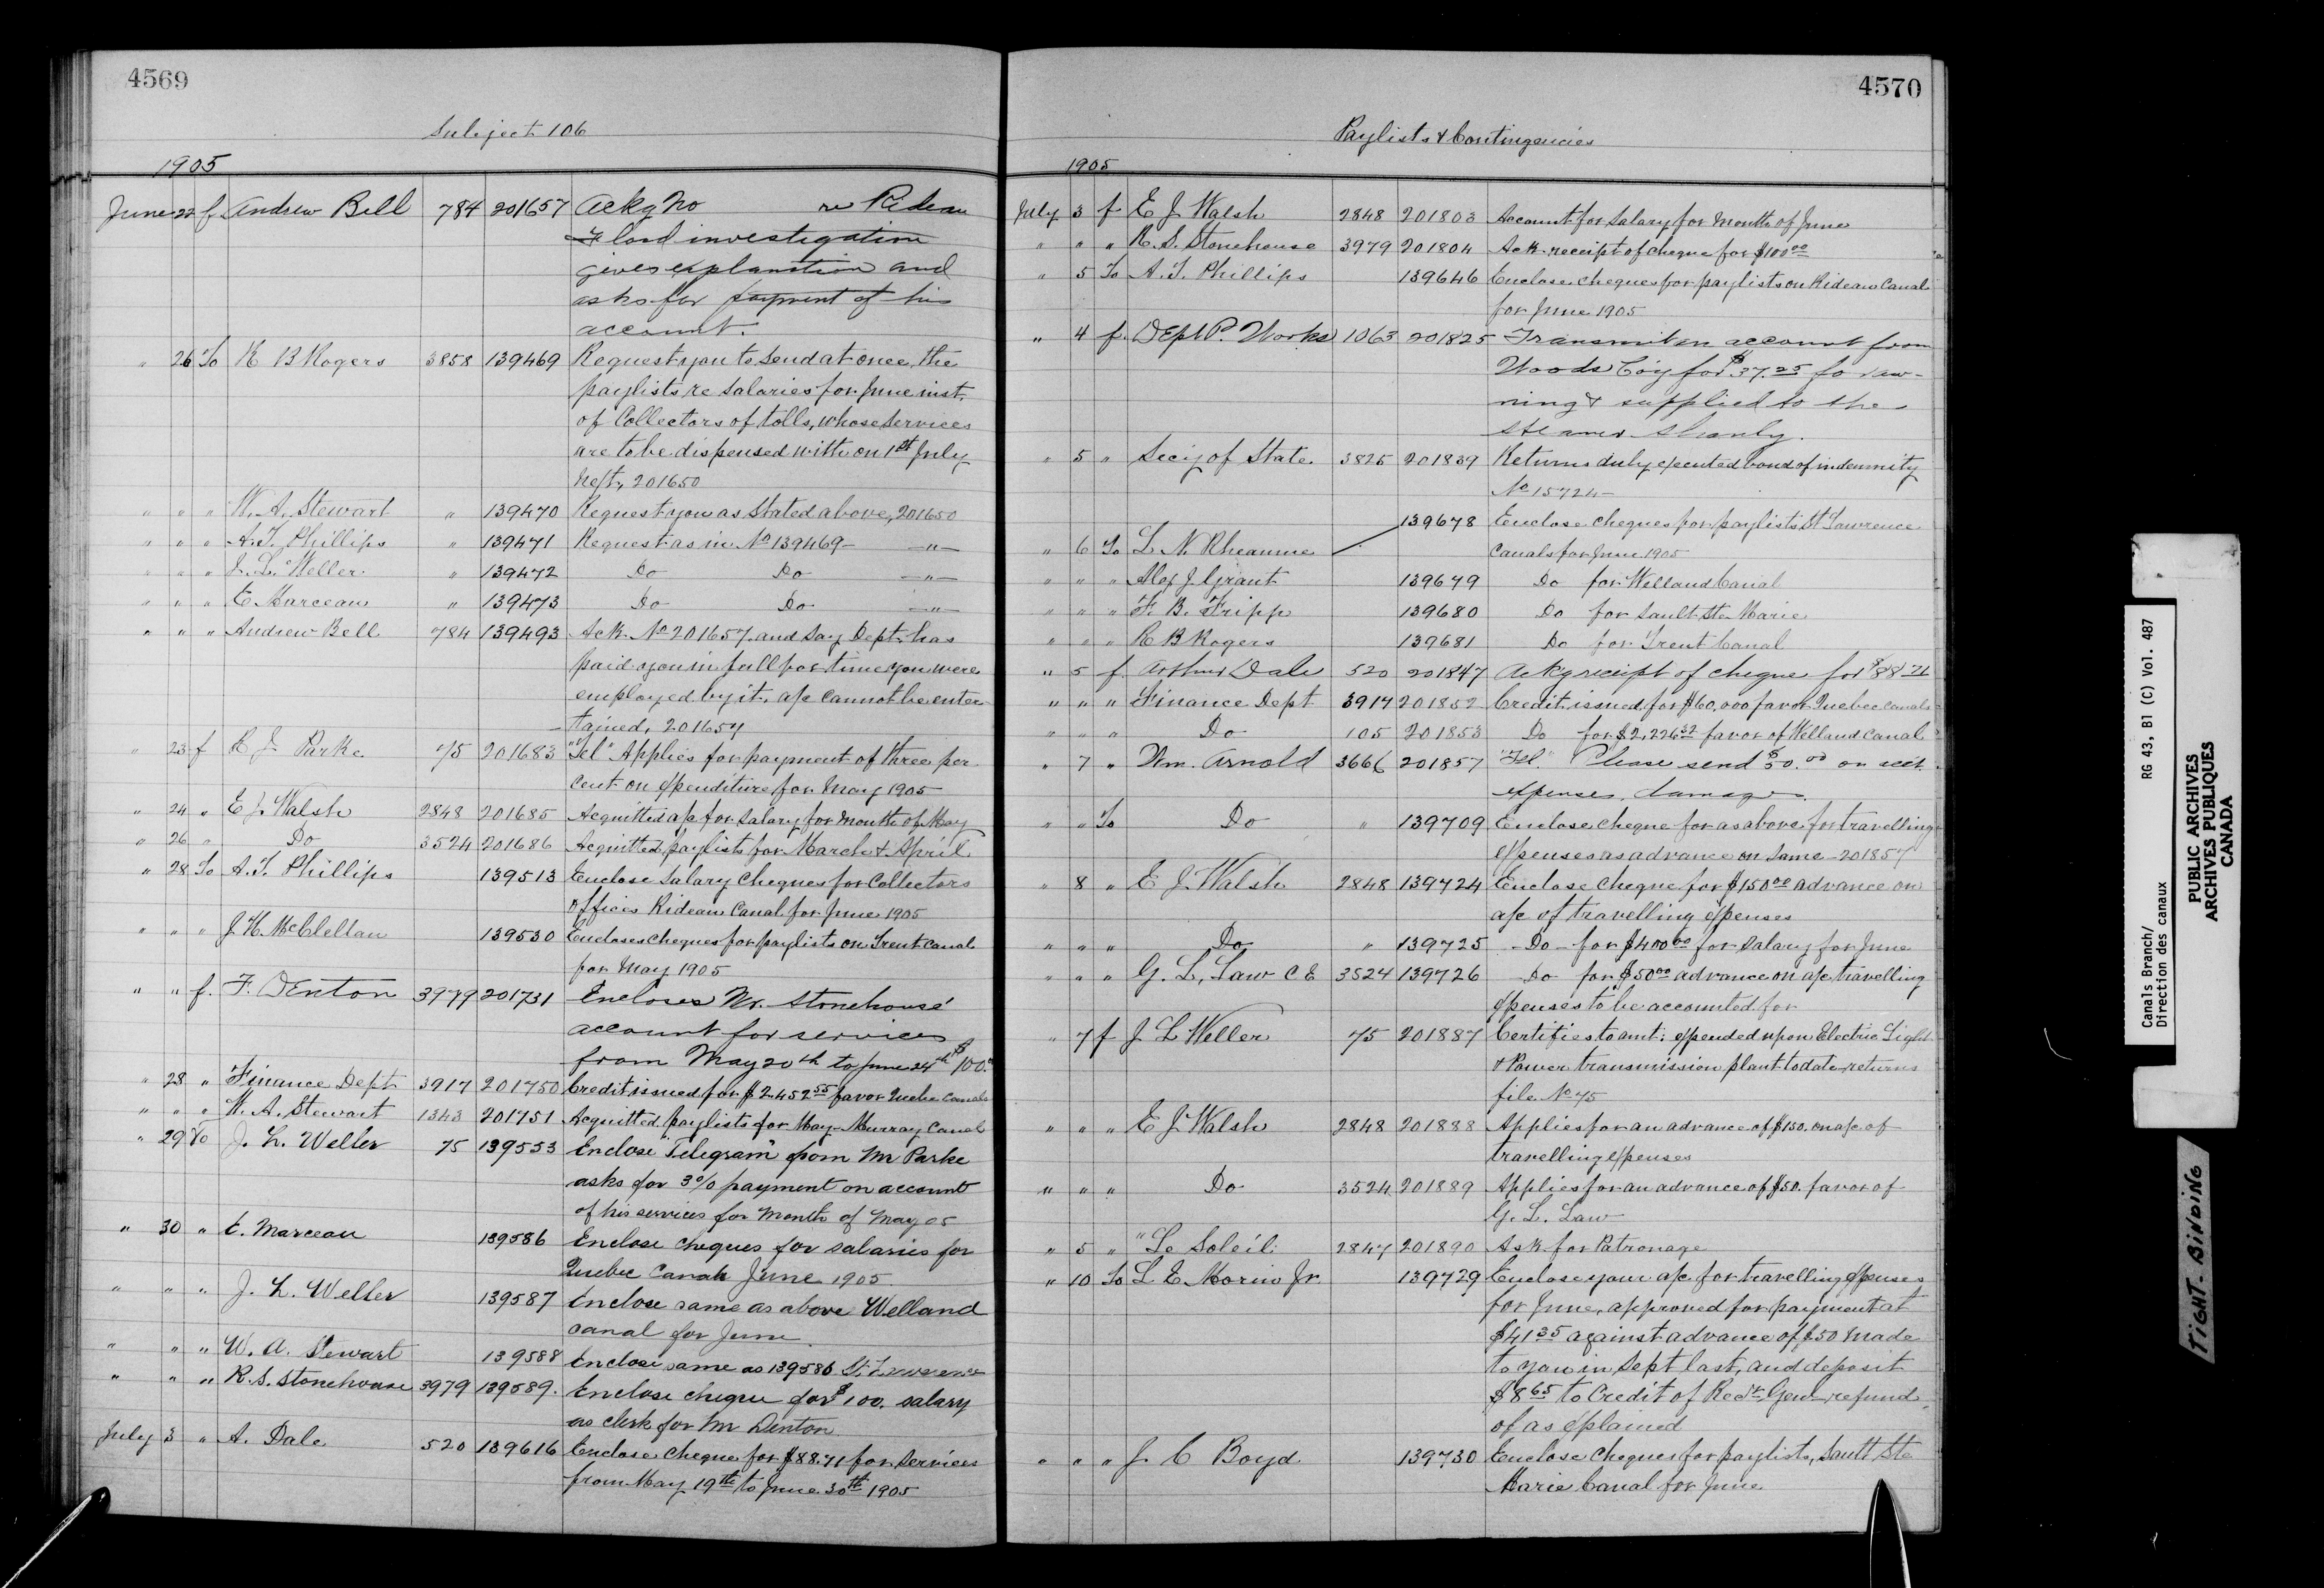 4569
Subject 106
1905
June 22 f Andrew Bell 784 201657 Ackg No re Rideau
Flood investigation
gives explanation and
asks for payment of his
account.
" 26 To R B Rogers 3858 139469 Request you to send at once, the
paylists re salaries for June inst.
of Collectors of tolls, whose services
are to be dispensed with on 1st July
next, 201650
" " " W. A. Stewart " 139470 Request you as stated above, 201650
" " " A. T. Phillips " 139471 Request as in No 139469 - - " -
" " " J. L. Weller " 139472 Do Do - " -
" " " E Marceau " 139473 Do Do - " -
" " " Andrew Bell 784 139493 Ack. No 201657 and say Dept. has
paid you in full for time you were
employed by it, a/c cannot be enter-
tained, 201657
" 23 f R J Parke 75 201683 "Tel" Applies for payment of three per
cent on expenditure for May 1905
" 24 " E J Walsh 2848 201685 Acquitted a/c for salary for month of May
" 26 " Do 3524 201686 Acquitted paylists for March & April
" 28 To A. T. Phillips 139513 Enclose Salary Cheques for Collectors
Offices Rideau Canal for June 1905
" " " J. H. McClellan 139530 Encloses cheques for paylists on Trent Canal
for May 1905
" " f. F. Denton 3979 201731 Encloses Mr. Stonehouse'
account for services
from May 20th to June 24th $100.00
" 28 " Finance Dept 3917 201750 Credit issued for $2452.55 favor Quebec Canals
" " " W. A. Stewart 1343 201751 Acquitted paylists for May - Murray Canal
" 29 To J. L. Weller 75 139553 Enclose "Telegram" from Mr Parke
asks for 3% payment on account
of his services for Month of May 05
" 30 " E. Marceau 139586 Enclose cheques for salaries for
Quebec Canals June 1905
" " " J. L. Weller 139587 Enclose same as above Welland
canal for June
" " " W. A. Stewart 139588 Enclose same as 139586 St. Lawrence
" " " R. S. Stonehouse 3979 139589. Enclose cheque for $100. salary
as clerk for Mr Denton
July 3 " A. Dale 520 139616 Enclose cheque for $88.71 for services
from May 19th to June 30th 1905
4570
Paylists & Contingencies
1905
July 3 f E J Walsh 2848 201803 Account for Salary for Month of June
" " " R. S. Stonehouse 3979 201804 Ack. receipt of cheque for $100.00
" 5 To A. T. Phillips 139646 Enclose cheques for paylists on Rideau Canal
for June 1905
" 4 f. Dept P. Works 1063 201825 Transmit an account from
Woods Coy for $37.25 for aw-
ning supplied to the
steamer Shanly.
" 5 " Secy of State. 3825 201839 Returns duly executed bond of indemnity
No 15724 -
" 6 To L. N. Rheaume 139678 Enclose cheques for paylists St Lawrence
Canals for June 1905
" " " Alex J. Grant 139679 Do for Welland Canal
" " " F. B. Fripp 139680 Do for Sault Ste Marie
" " " R B Rogers 139681 Do for Trent Canal
" 5 f. Arthur Dale 520 201847 Ackg receipt of cheque for $88.71
" " " Finance Dept 3917 201852 Credit issued for $60,000 favor Quebec Canals
" " " Do 105 201853 Do for $2,226.32 favor of Welland Canal
" 7 " Wm. Arnold 3666 201857 "Tel." Please send $50.00 on acct
expenses, damages.
" " To Do " 139709 Enclose cheque for as above for travelling
expenses as advance on same - 201857
" 8 " E J. Walsh 2848 139724 Enclose cheque for $150.00 advance on
a/c of travelling expenses
" " " Do " 139725 - Do - for $400.00 for salary for June
" " " G. L. Law C E 3524 139726 Do for $50.00 advance on a/c travelling
expenses to be accounted for
" 7 f J L Weller 75 201887 Certifies to amt: expended upon Electric Light
& Power transmission plant to date, returns
file No 75
" " " E J Walsh 2848 201888 Applies for an advance of $150. on a/c of
travelling expenses
" " " Do 3524 201889 Applies for an advance of $50. favor of
G. L. Law
" 5 " "Le Soleil: 2847 201890 Ask for Patronage
" 10 To L E Morin Jr. 139729 Enclose your a/c for travelling expenses
for June, approved for payment at
$41.35 against advance of $50 made
to you in Sept last, and deposit
$8.65 to Credit of Recr. Genl. refund
of as explained
" " " J. C Boyd 139730 Enclose cheques for paylists, Sault Ste
Marie Canal for June
Canals Branch/
Direction des canaux
RG 43, B1 (C) Vol. 487
PUBLIC ARCHIVES
ARCHIVES PUBLIQUES
CANADA
TIGHT BINDING